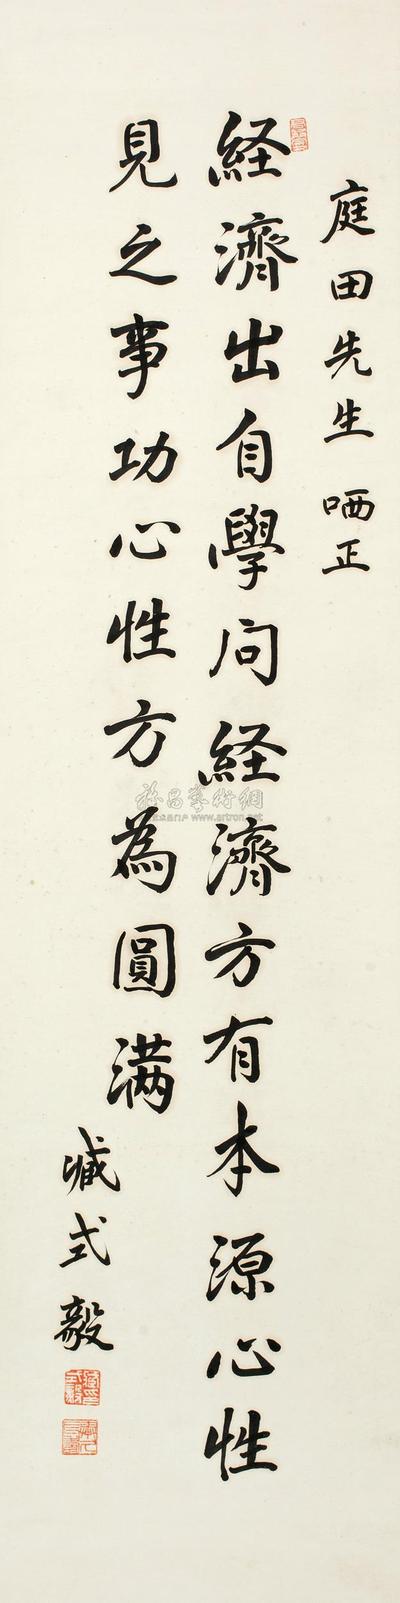 庭田先生 哂正
経濟出自學问経濟方有本源心性
見之事功心性方為圓満
臧式毅
臧式毅
雅昌藝術網
www.artron.net